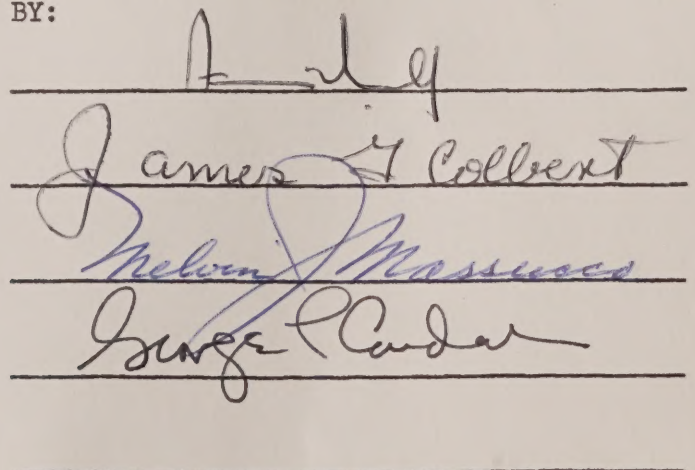 BY:
James G Colbert
Melvin J Massucco
George P Condak